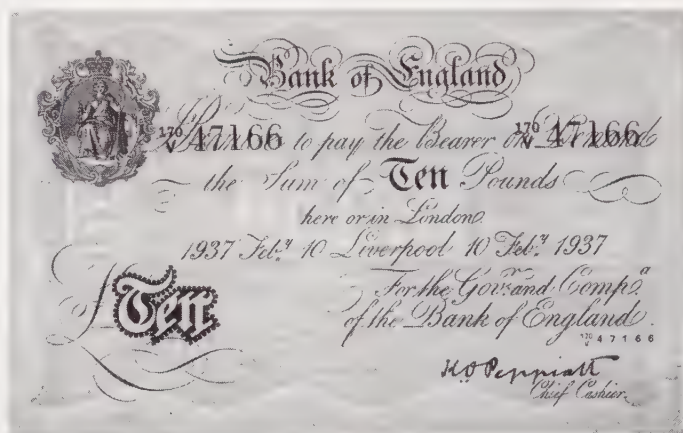 Bank of England
170/V 47166 to pay the Bearer on Demand 170/V 47166
the Sum of Ten Pounds
here or in London
1937 Feby. 10 Liverpool 10 Feby. 1937
For the Govr. and Compa.
of the Bank of England.
170/V 47166
£Ten
K O Peppiatt
Chief Cashier.